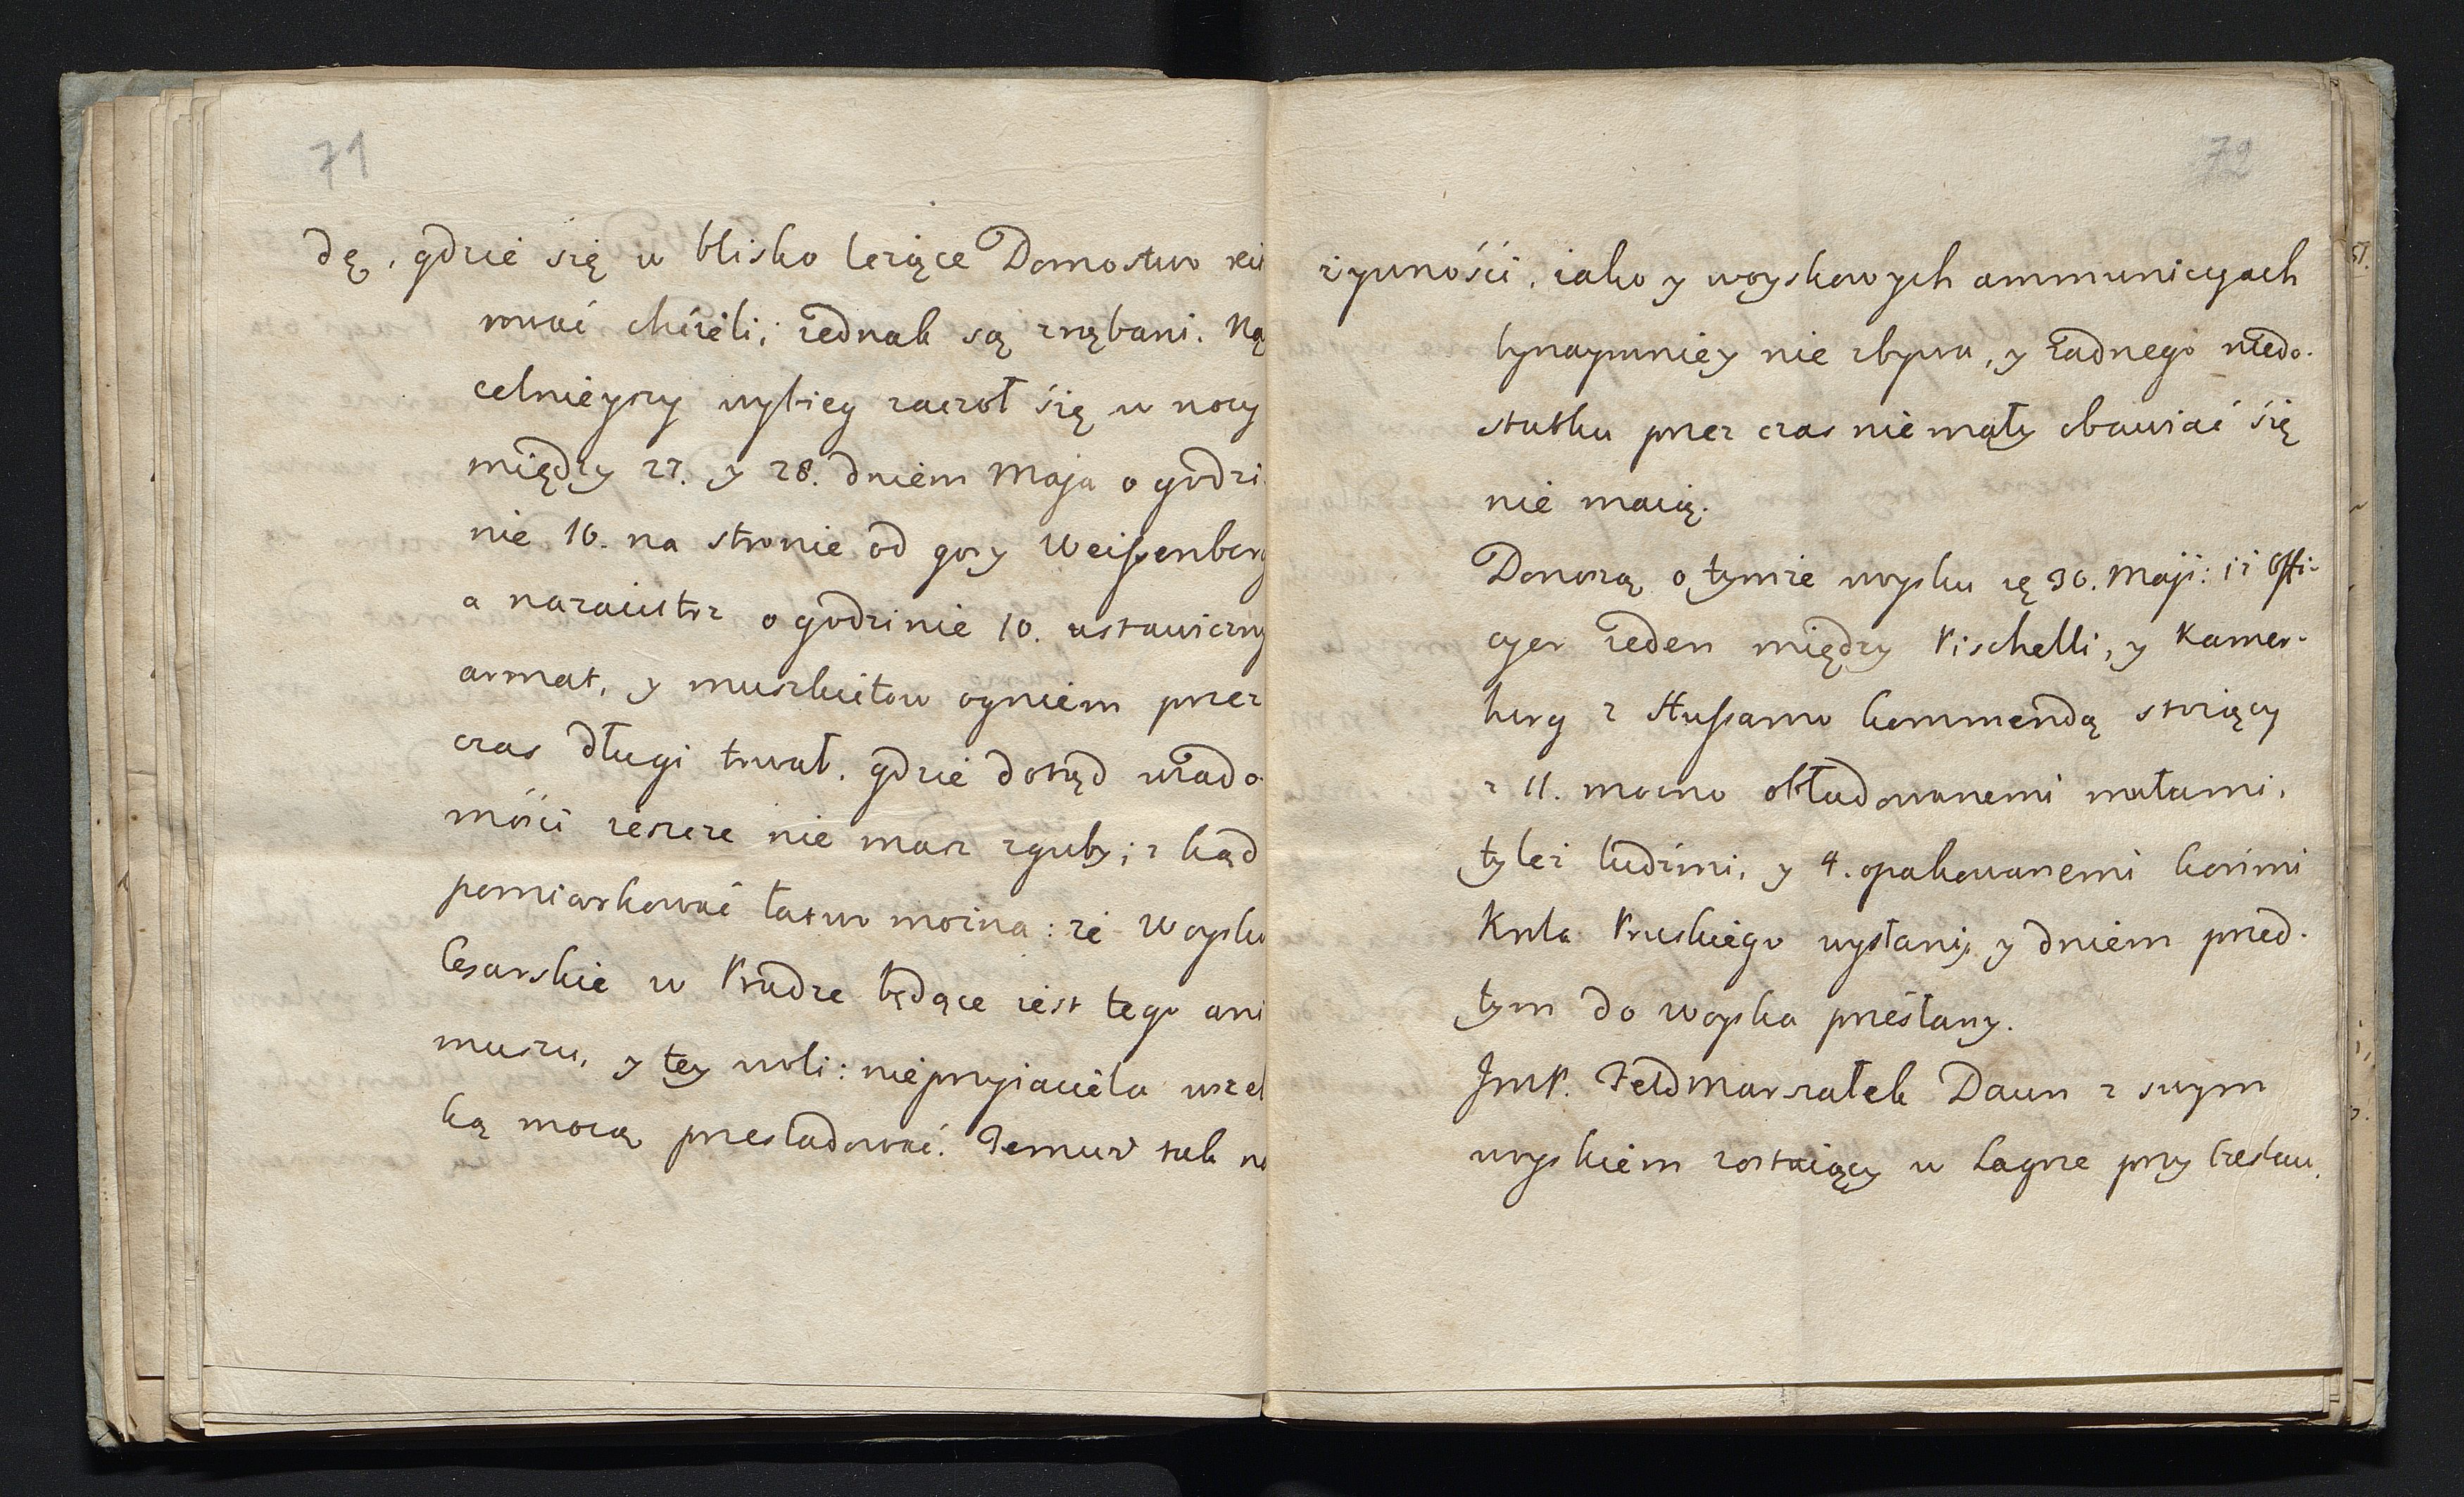 71
dę, gdzie się w blisko leżące Domostwo
mwać chcieli; iednak są zrąbani. Nay
celnieyszy wybieg zaczoł się w nocy
między 27. y 28. dniem Maja o godzi
nie 10. na stronie od gory Weißenberg
a nazaiutrz o godzinie 10. ustawiczny
armat, y muszkietow ogniem przez
czas długi trwał. gdzie dotąd wiado
mości ieszcze nie masz zguby; z kąd
pomiarkować łatwo można: że Woysko
Cesarskie w Pradze będące iest tego ani
muszu, y tey woli: nieprzyiaciela wszel
ką mocą prześladować. Temuż tak na
72
żywności, iako y woyskowych ammunicyach
bynaymniey nie zbywa, y żadnego niedo-
statku przez czas nie mały obawiać się
nie maią.
Donoszą o tymże woysku żę 30. Maji: iż Offi-
cyer ieden między Pischelli, y Kamer-
burg z Hussarną kommendą stoiący
z 11. mocno obładowanemi mułami,
tyleż ludźmi, y 4. opakowanemi końmi
Krola Pruskiego wysłani, y dniem przed-
tym do Woyska przesłany.
JmP. Feldmarszałek Daun z swym
woyskiem zostaiący w Lagrze przy Czeslau.